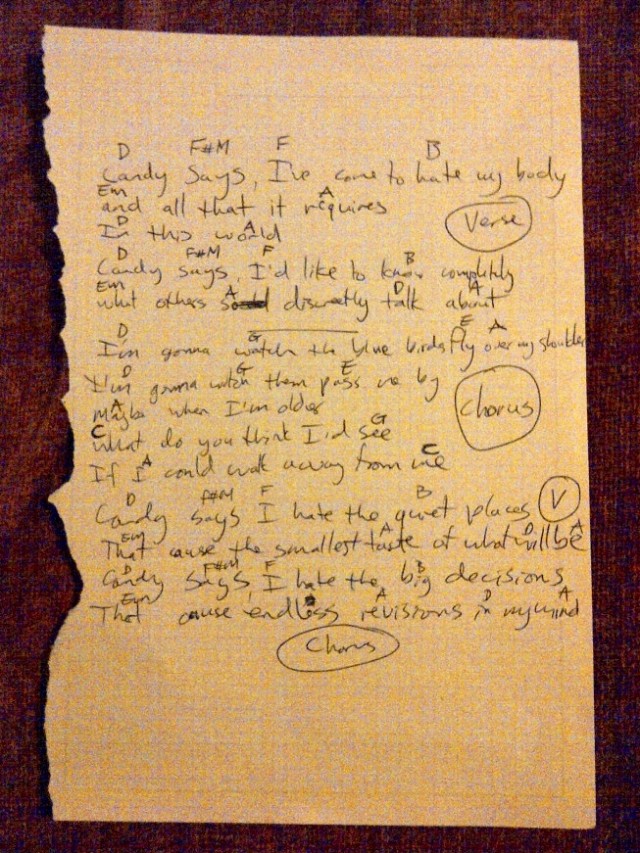 D F#M F B
Candy Says, I've come to hate my body
Em A
and all that it requires
D A
In this world
Verse
D F#M F B
Candy says, I'd like to know completly
Em A D A
what others discreetly talk about
D G E A
I'm gonna watch the blue birds fly over my shoulder
D G E
I'm gonna watch them pass me by
A
Maybe when I'm older
Chorus
C G
What do you think I'd see
A C
If I could walk away from me
D F#M F B
Candy says I hate the quiet places
V
Em A D A
That cause the smallest taste of what will be
D F#M F B
Candy Says, I hate the big decisions
Em A D A
That cause endless revisions in my mind
Chorus